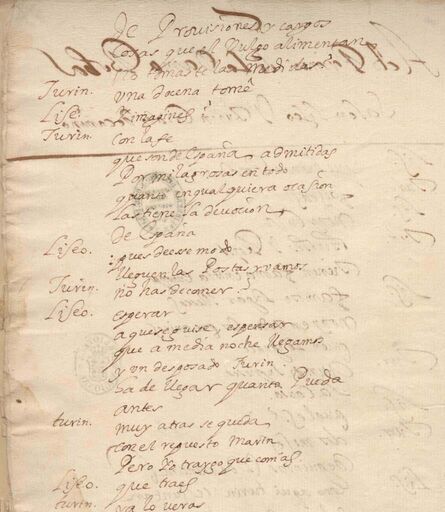 De Provisiones y cargos
cosas que el Vulgo alimentan
no tomaste las medidas
Turin. una docena tome
Liseo. I imagines
Turin. con la fe
que son de España admitidas
Por milagrosas en todo
quanto en qualquiera ocasion
las tiene la devocion
de España
Liseo. pues de esse modo
lleguen las Postas y vamos
Turin. no has de comer
Liseo. esperar
a que se guise es pensar
que a media noche llegamos
y un desposado Turin
ha de llegar quanto Pueda
antes
turin. muy atras se queda
con el repuesto Marin
Pero yo traygo que comas
Liseo. que traes
turin. ya lo veras